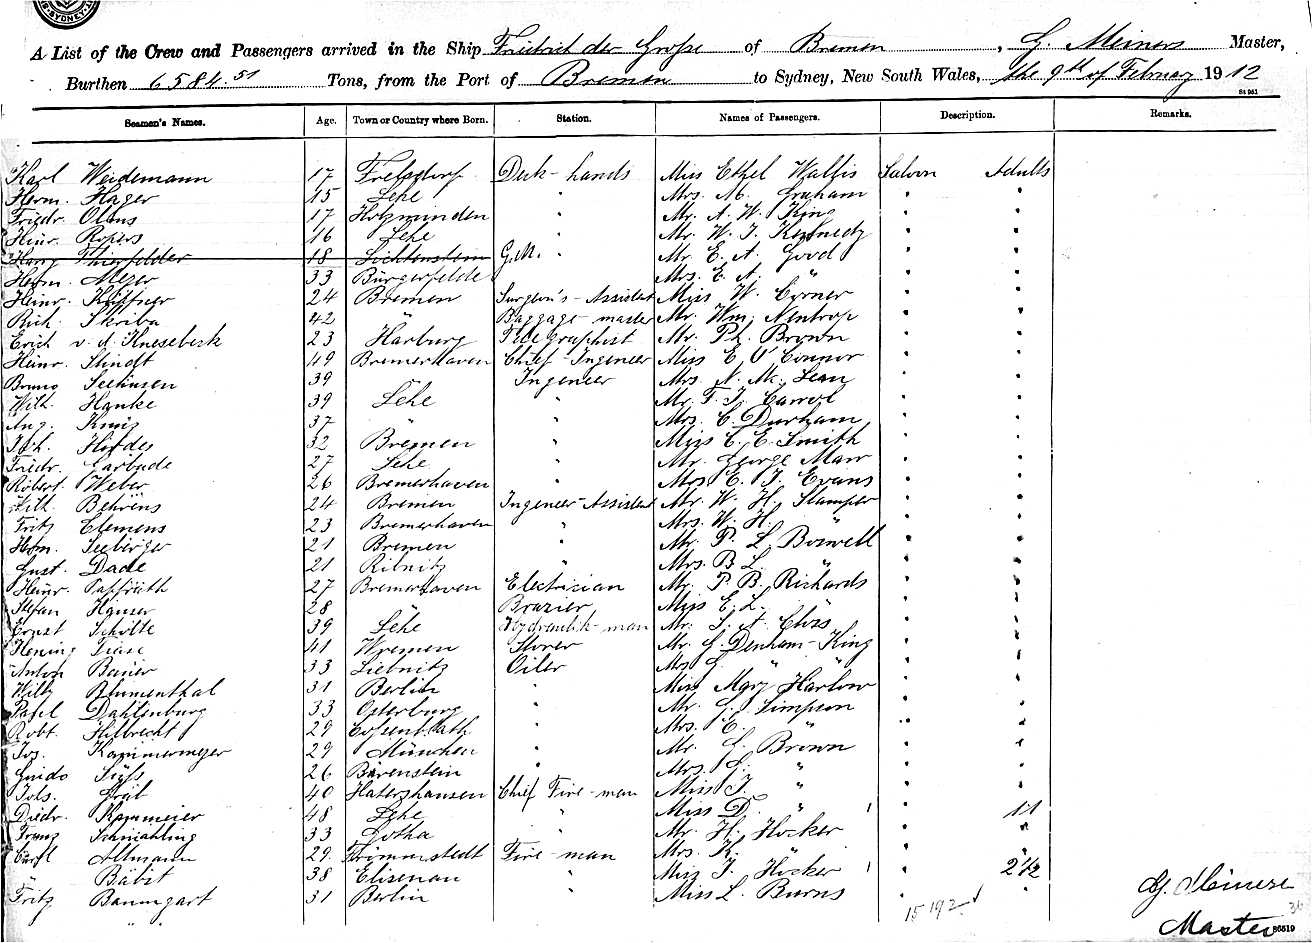 SYDNEY
A List of the Crew and Passengers arrived in the Ship Friedrich der Große of Bremen, G. Meiners Master,
Burthen 6584.51 Tons, from the Port of Bremen to Sydney, New South Wales, the 9th of February 1912
St 951
Seamen's Names. Age. Town or Country where Born. Station. Names of Passengers. Description. Remarks.
Karl Weidemann 17 Frelsdorf Deck-hands Miss Ethel Wallis Saloon Adults
Herm. Hager 15 Lehe " Mrs. M. Graham " "
Friedr. Olms 17 Holzminden " Mr. A. W. King " "
Heinr. Ropers 16 Lehe " Mr. W. J. Kennedy " "
Harry Thierfelder 18 Lichtenstein G.M. " Mr. E. A. Good " "
Herm. Meyer 33 Bürgerfelde Mrs. E. A. " " "
Heinr. Küffner 24 Bremen Surgeon's-Assistent Miss W. Cyrner " "
Rich. Skriba 42 " Baggage-master Mr. Wm. Nentrop " "
Erich v. d. Knesebeck 23 Harburg Telegraphist Mr. Ph. Brown " "
Heinr. Stindt 49 Bremerhaven Chief-Ingeneer Miss E. O'Connor " "
Bruno 39 " Ingeneer Mrs. N. Mc. Lean " "
Wilh. Hanke 39 Lehe " Mr. F. J. Carrol " "
Aug. 37 " " Mrs. C. Durham " "
Joh. 32 Bremen " Miss C. E. Smith " "
Friedr. Garbade 27 Lehe " Mr. George Marr " "
Robert Weber 26 Bremerhaven " Mrs. E. J. Evans " "
Wilh. Behrens 24 Bremen Ingeneer-Assistent Mr. W. H. Stamper " "
Fritz Clemens 23 Bremerhaven " Mrs. W. H. " " "
Herm. Seeberger 21 Bremen " Mr. P. L. Boswell " "
Gust. Dade 21 Ribnitz " Mrs. B L. " " "
Heinr. Papfrath 27 Bremerhaven Electrician Mr. P. B. Richards " "
Stefan Hauser 28 " Brazier Miss E. L. " " "
Ernst Scholte 39 Lehe Hydraulik-man Mr. " "
Hening 41 Wremen Storer Mr. G. Denham-King " "
Anton Beuer 33 Liebnitz Oiler Mrs. G. " " " "
Willy Blumenthal 31 Berlin " Miss Mary Harlow " "
Paul Dahlenburg 33 Osterburg " Mr. Simpson " "
Robt. Hilbrecht 29 " Mrs. E. " " "
Jos. Kammermeyer 29 München " Mr. G. Brown " "
Guido Süss 26 Bärenstein " Mrs. " " "
Johs. 40 Hatershausen Chief Fire-man Miss J. " " "
Diedr. Kammeier 48 Lehe " Miss D. " " 11
Franz Schmahling 33 Gotha " Mr. H. Hocker " "
Carl Altmann 29 Frimmerstedt Fire-man Mrs. K. " " "
" Bäbit 38 Elisenau " Miss J. Hocker " 2 1/2
Fritz Baumgart 31 Berlin " Miss L. Burns " "
15192
G. Meiners
Master
36
86519